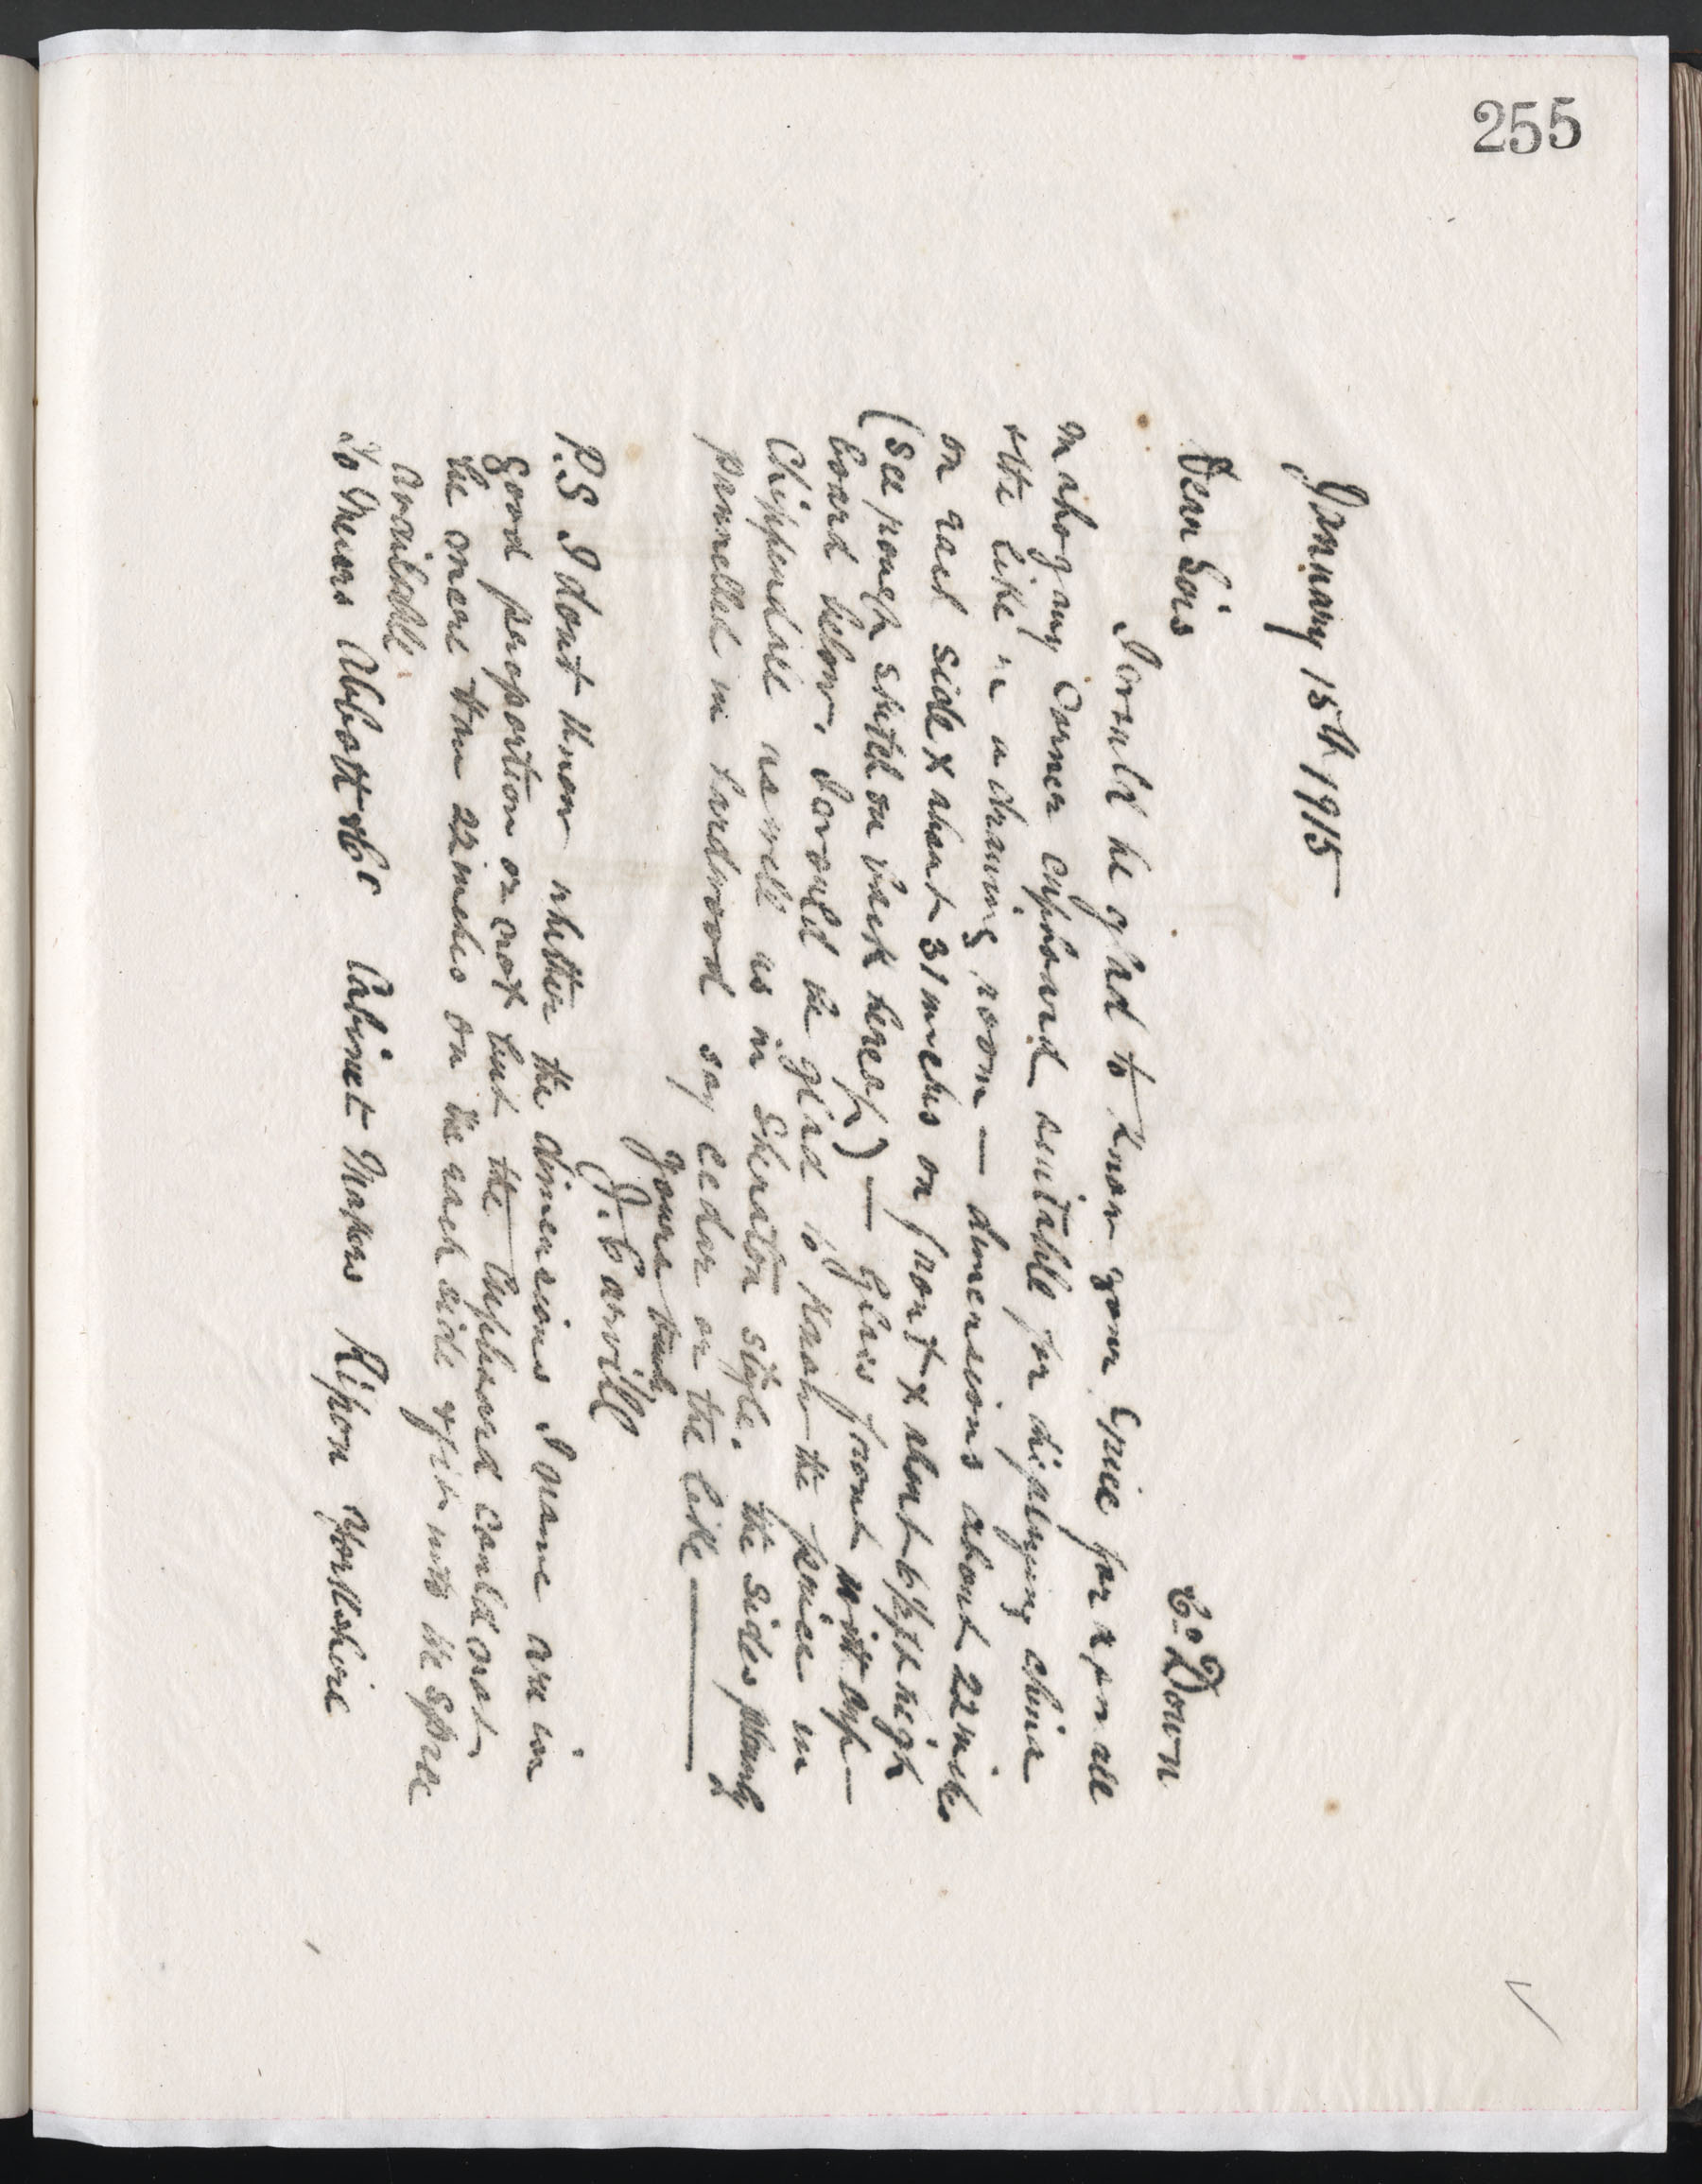 255
January 15th 1915
Co: Down
Dear Sirs
I would be glad to know your price for a small
mahogany corner cupboard suitable for displaying china
& the like in a drawing room — dimensions about 22 inches
on each side x about 31 inches on front x about 6 feet high
(see rough sketch on back hereof) — Glass front with cup-
board below. I would be glad to know the price in
Chippendale as well as in Sheraton style. the sides plainly
pannelled in hardwood say cedar or the like —
Yours truly
J. Carvill
P.S I dont know whether the dimensions I name are in
good proportion or not but the cupboard could not
be more than 22 inches on the each side to fit into the space
available.
To Messrs Abbott & Co Cabinet Makers Ripon Yorkshire